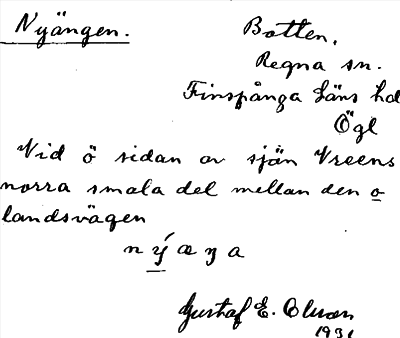 Nyängen.
Botten.
Regna sn.
Finspånga Läns hd
Ögl
Vid ö sidan av sjön Vreens
norra smala del mellan den o
landsvägen
Gustaf E. Olsson
1931